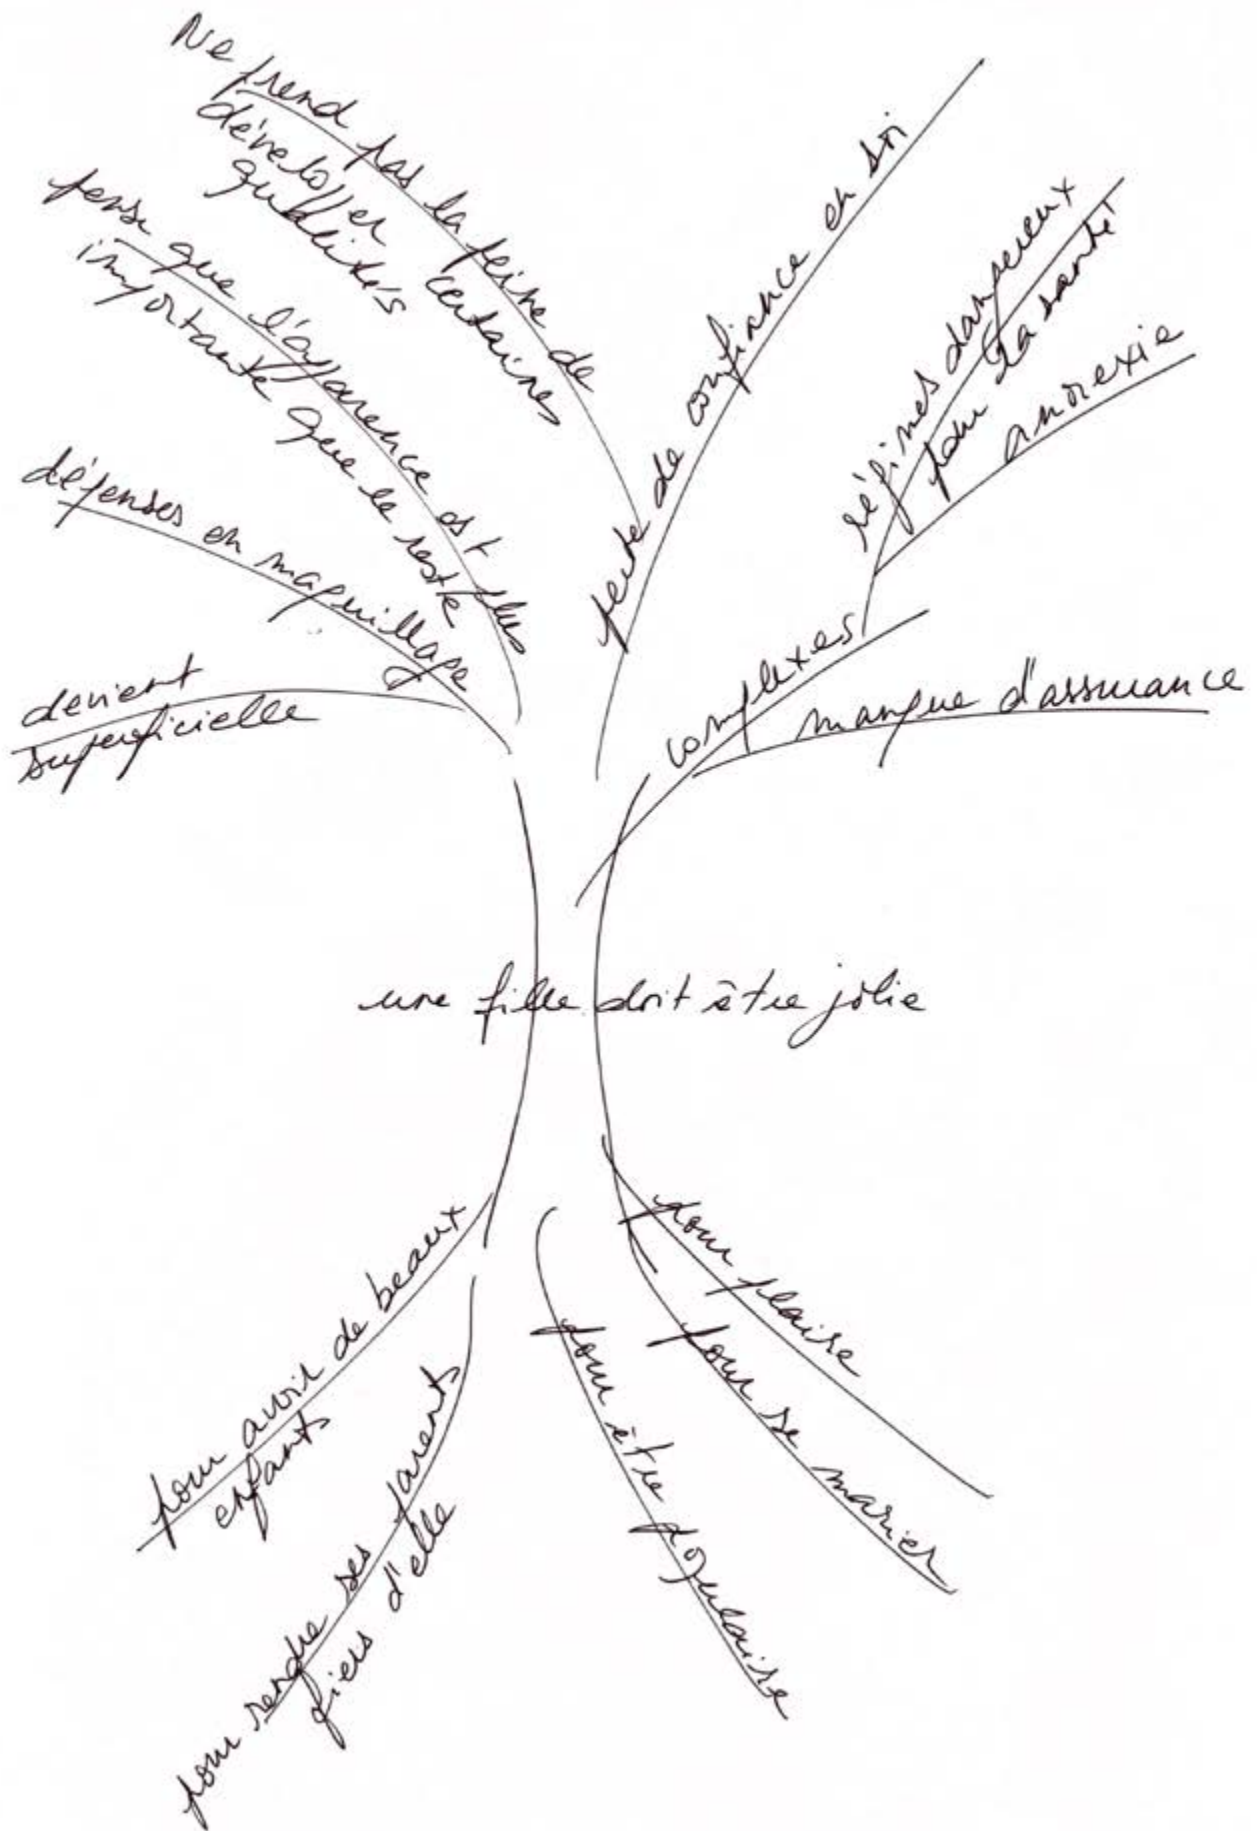 Ne prend pas la peine de
développer certaines
qualités
pense que l'apparence est plus
importante que le reste
dépenses en maquillage
devient
superficielle
perte de confiance en soi
régimes dangereux
pour la santé
anorexie
complexes
manque d'assurance
une fille doit être jolie
pour avoir de beaux
enfants
pour rendre ses parents
fiers d'elle
pour être populaire
pour se marier
pour plaire